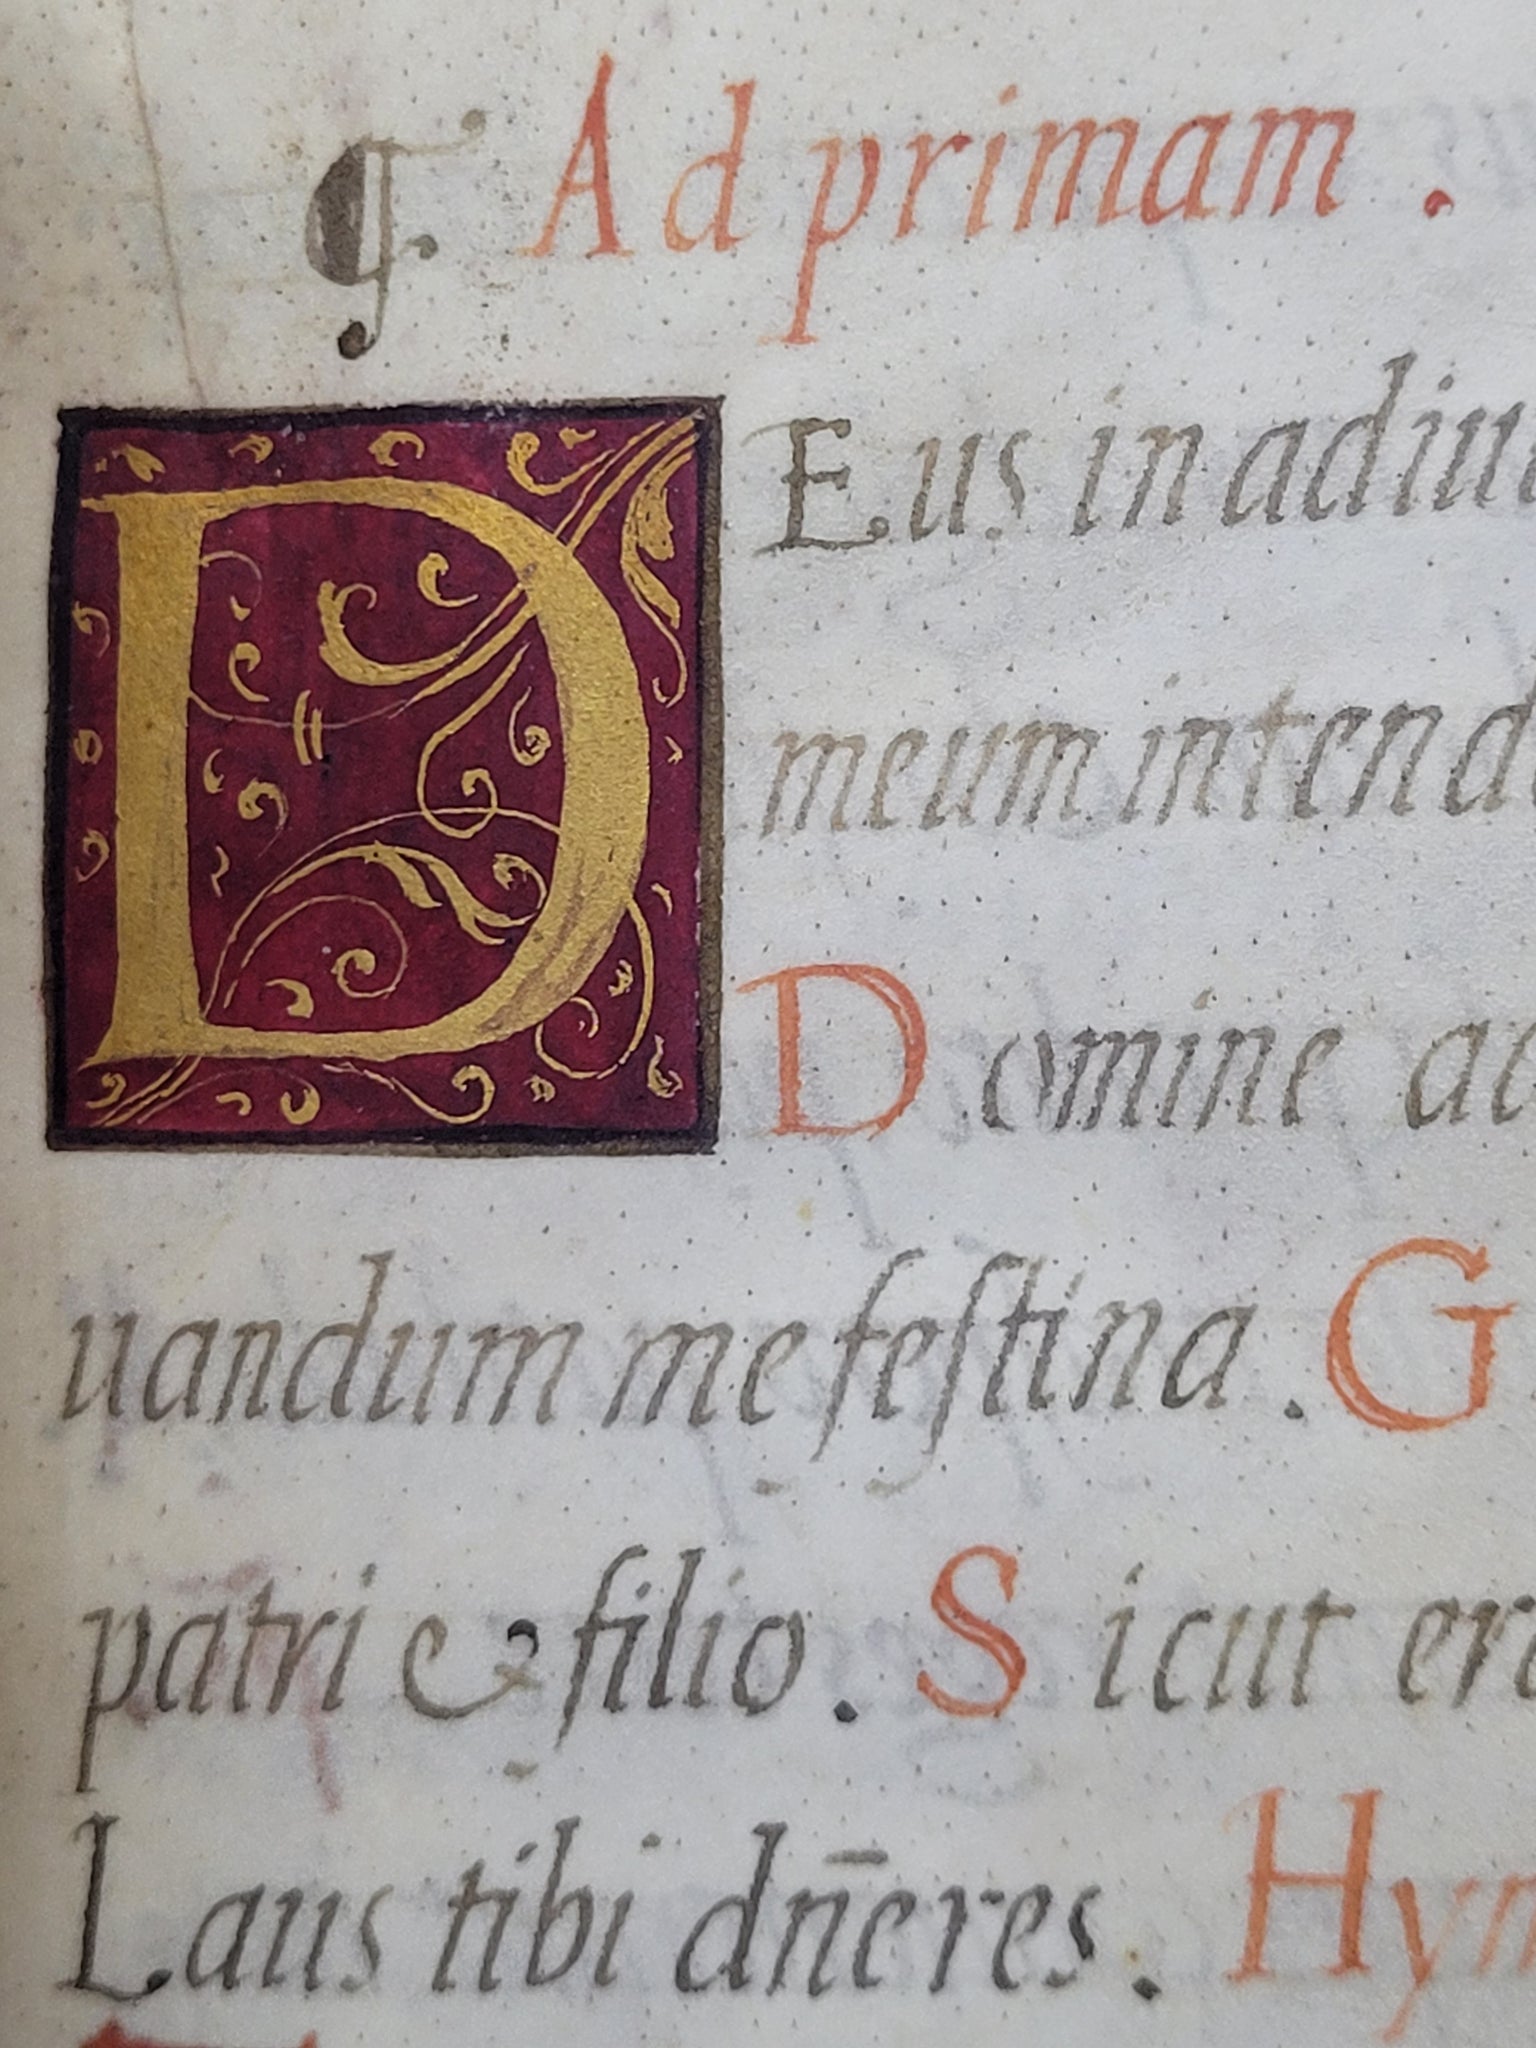 ¶ Ad primam .
DEus in adiu
meum intend
Domine ad
uandum me feſtina . G
patri & filio . Sicut era
Laus tibi dn̄e res . Hym